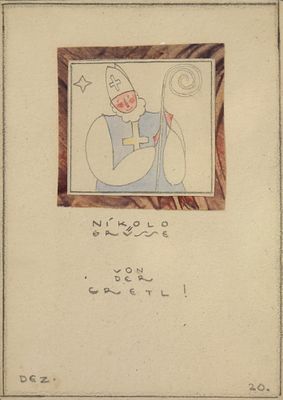 NIKOLO
GRÜSSE
VON
DER
GRETL!
DEZ. 20.